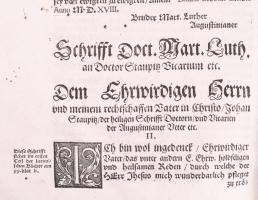 Anno M D XVIII.
Bruder Mart. Luther
Augustinianer
Schrifft Doct. Mart. Luth.
an Doctor Staupitz Vicarium etc.
Dem Ehrwirdigen Herrn
und meinem rechtschaffen Vater in Christo, Johan
Staupitz, der heiligen Schrifft Doctorn, und Vicarien
der Augustinianer Veter etc.
II.
Diese Schrifft
Ich bin wol ingedenck, Ehrwirdiger
Vater, das unter andern E. Ehrw. holdseligen
und heilsamen Reden, durch welche der
HErr Jhesus mich wunderbarlich pfleget